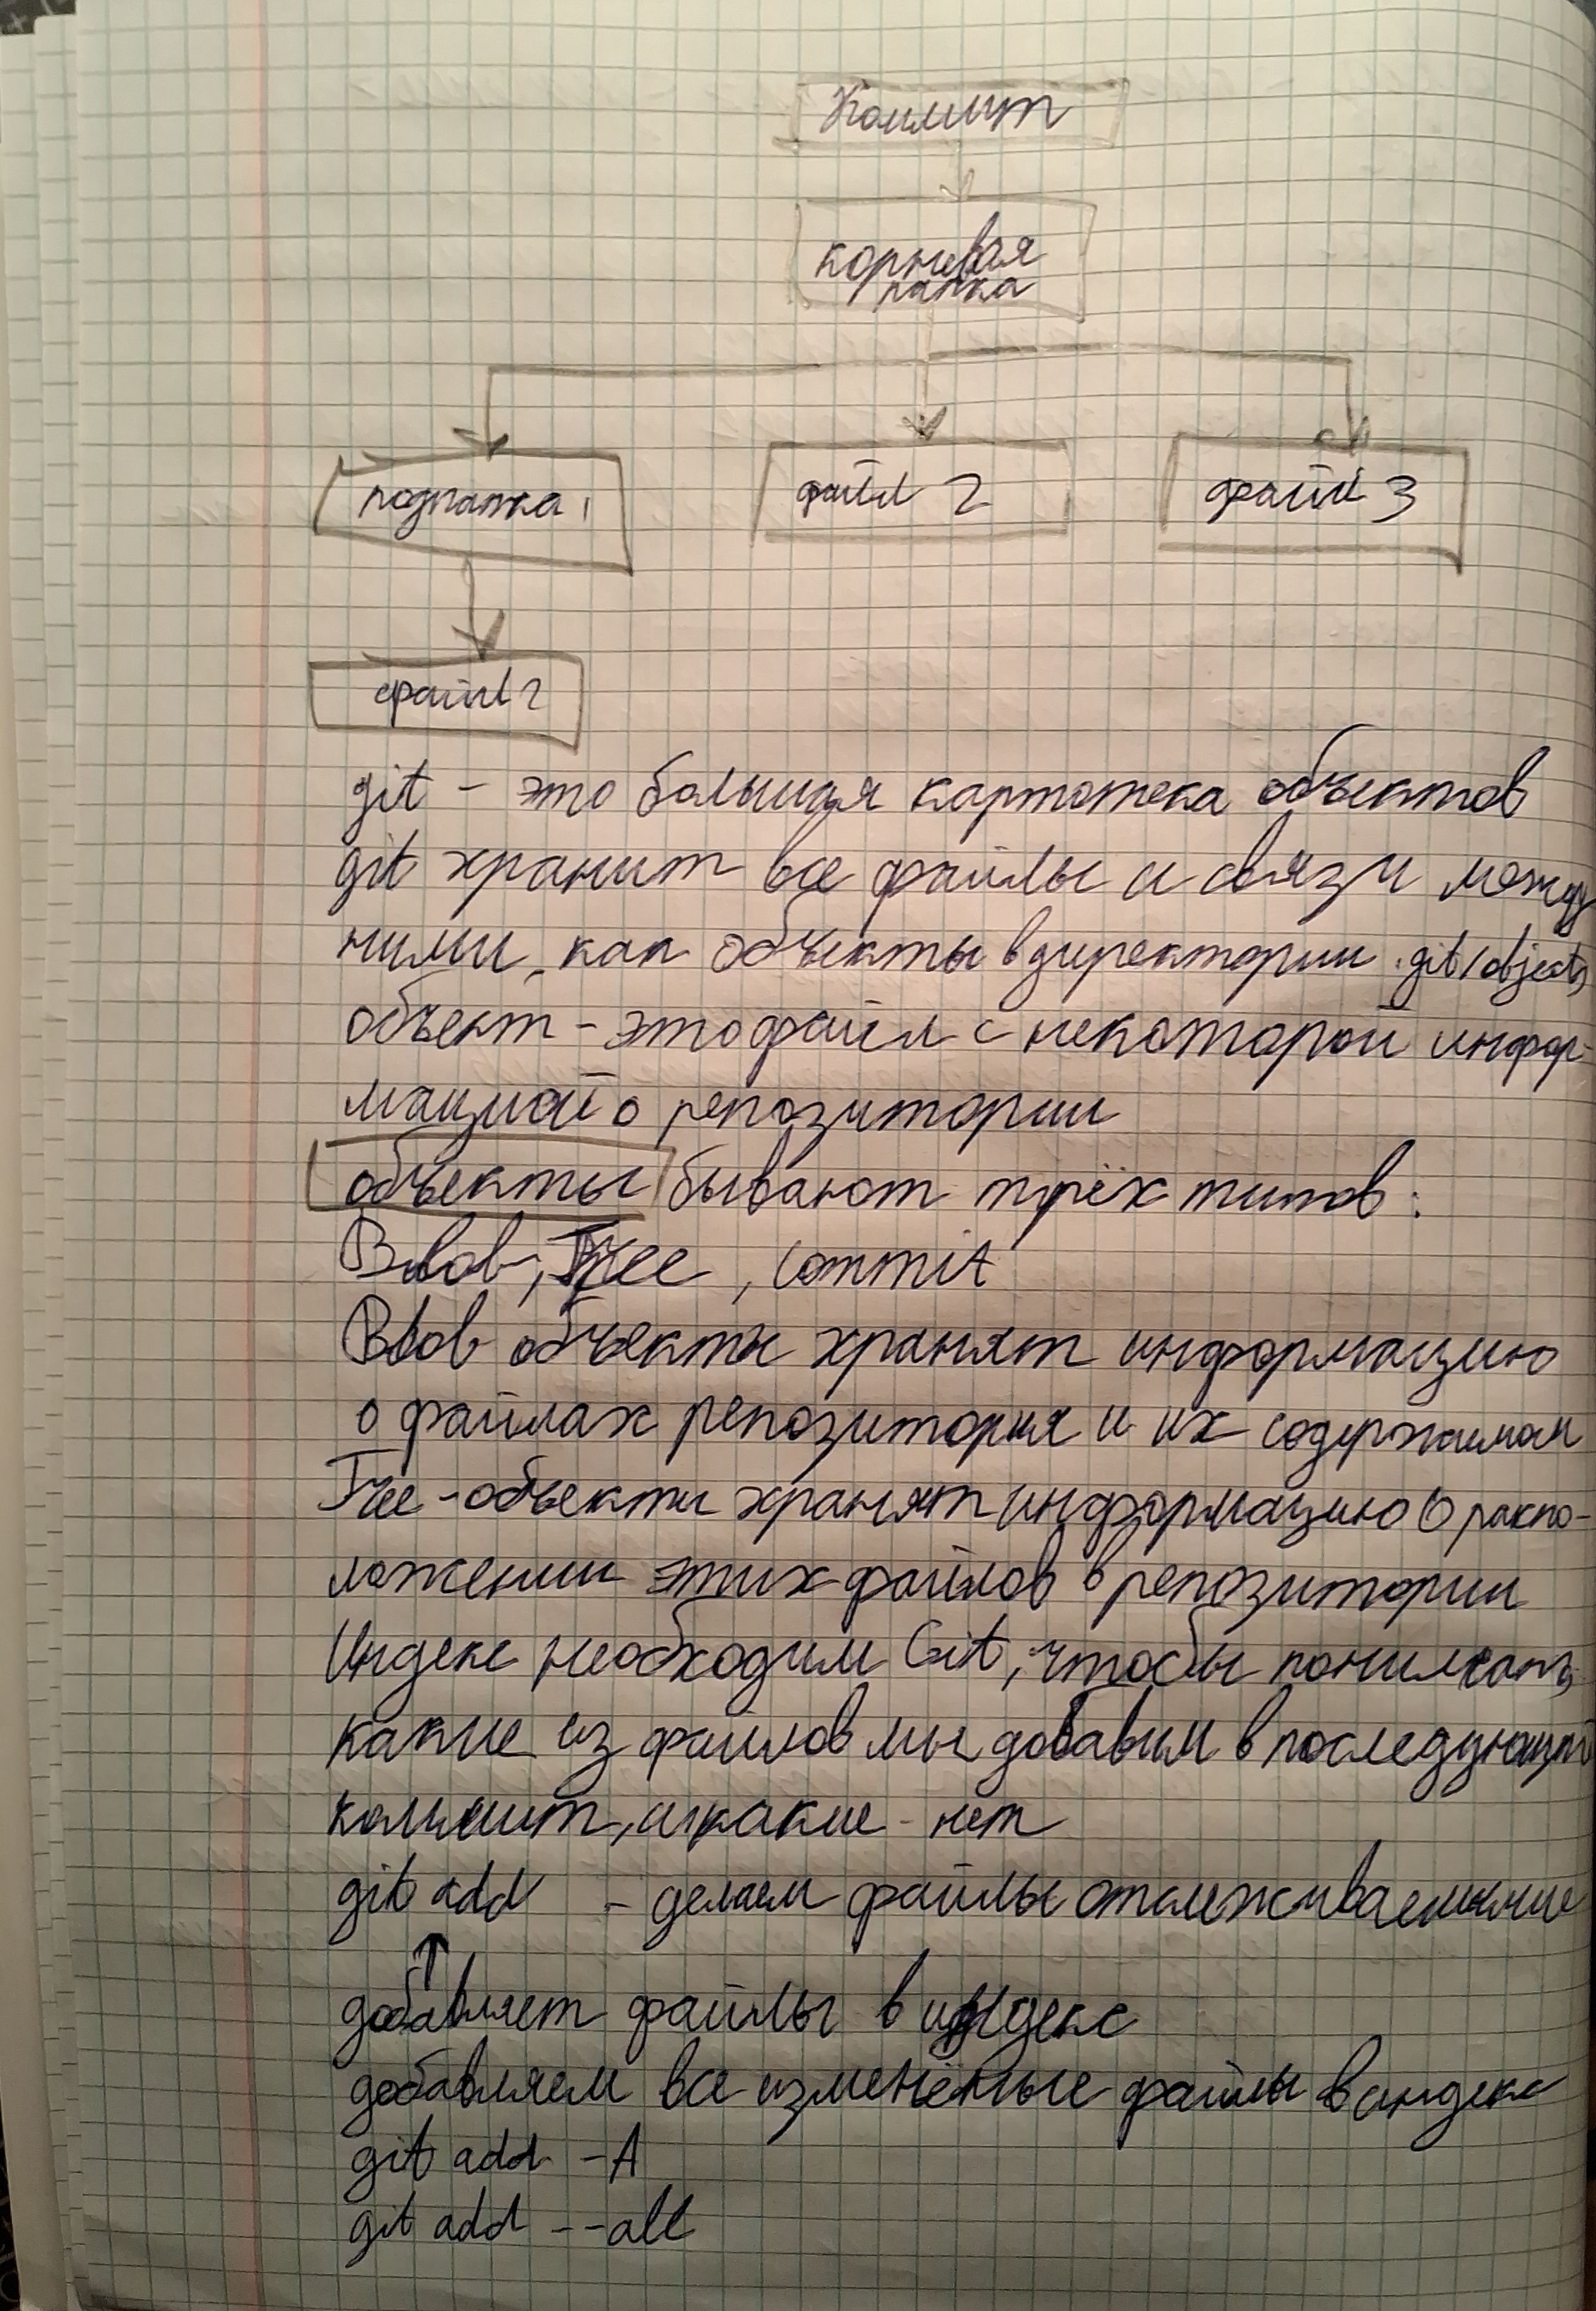 Коммит
корневая
папка
подпапка 1
файл 2
файл 3
файл 2
git - это большая картотека объектов
git хранит все файлы и связи между
ними, как объекты в директории .git/objects
объект - это файл с некоторой инфор-
мацией о репозитории
объекты бывают трёх типов:
Blob, Tree, commit
Blob объекты хранят информацию
о файлах репозитория и их содержимом
Tree-объекты хранят информацию о распо-
ложении этих файлов в репозитории
Индекс необходим Git, чтобы понимать,
какие из файлов мы добавим в последующий
коммит, а какие - нет
git add - делаем файлы отслеживаемыми
добавляет файлы в индекс
добавляем все изменённые файлы в индекс
git add -A
git add --all